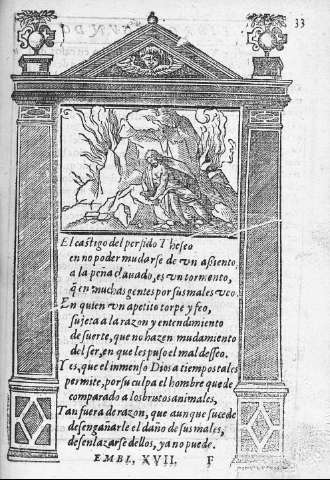 33
El castigo del perfido Theseo
en no poder mudarse de vn asiento,
a la peña clauado, es vn tormento,
q̃ en muchas gentes por sus males veo.
En quien vn apetito torpe y feo,
sujeta a la razon y entendimiento
de suerte, que no hazen mudamiento
del ser, en que les puso el mal desseo.
Y es, que el inmenso Dios a tiempos tales
permite, por su culpa el hombre quede
comparado a los brutos animales,
Tan fuera de razon, que aunque sucede
desengañarle el daño de sus males,
desenlazarse dellos, ya no puede.
EMBL. XVII. F